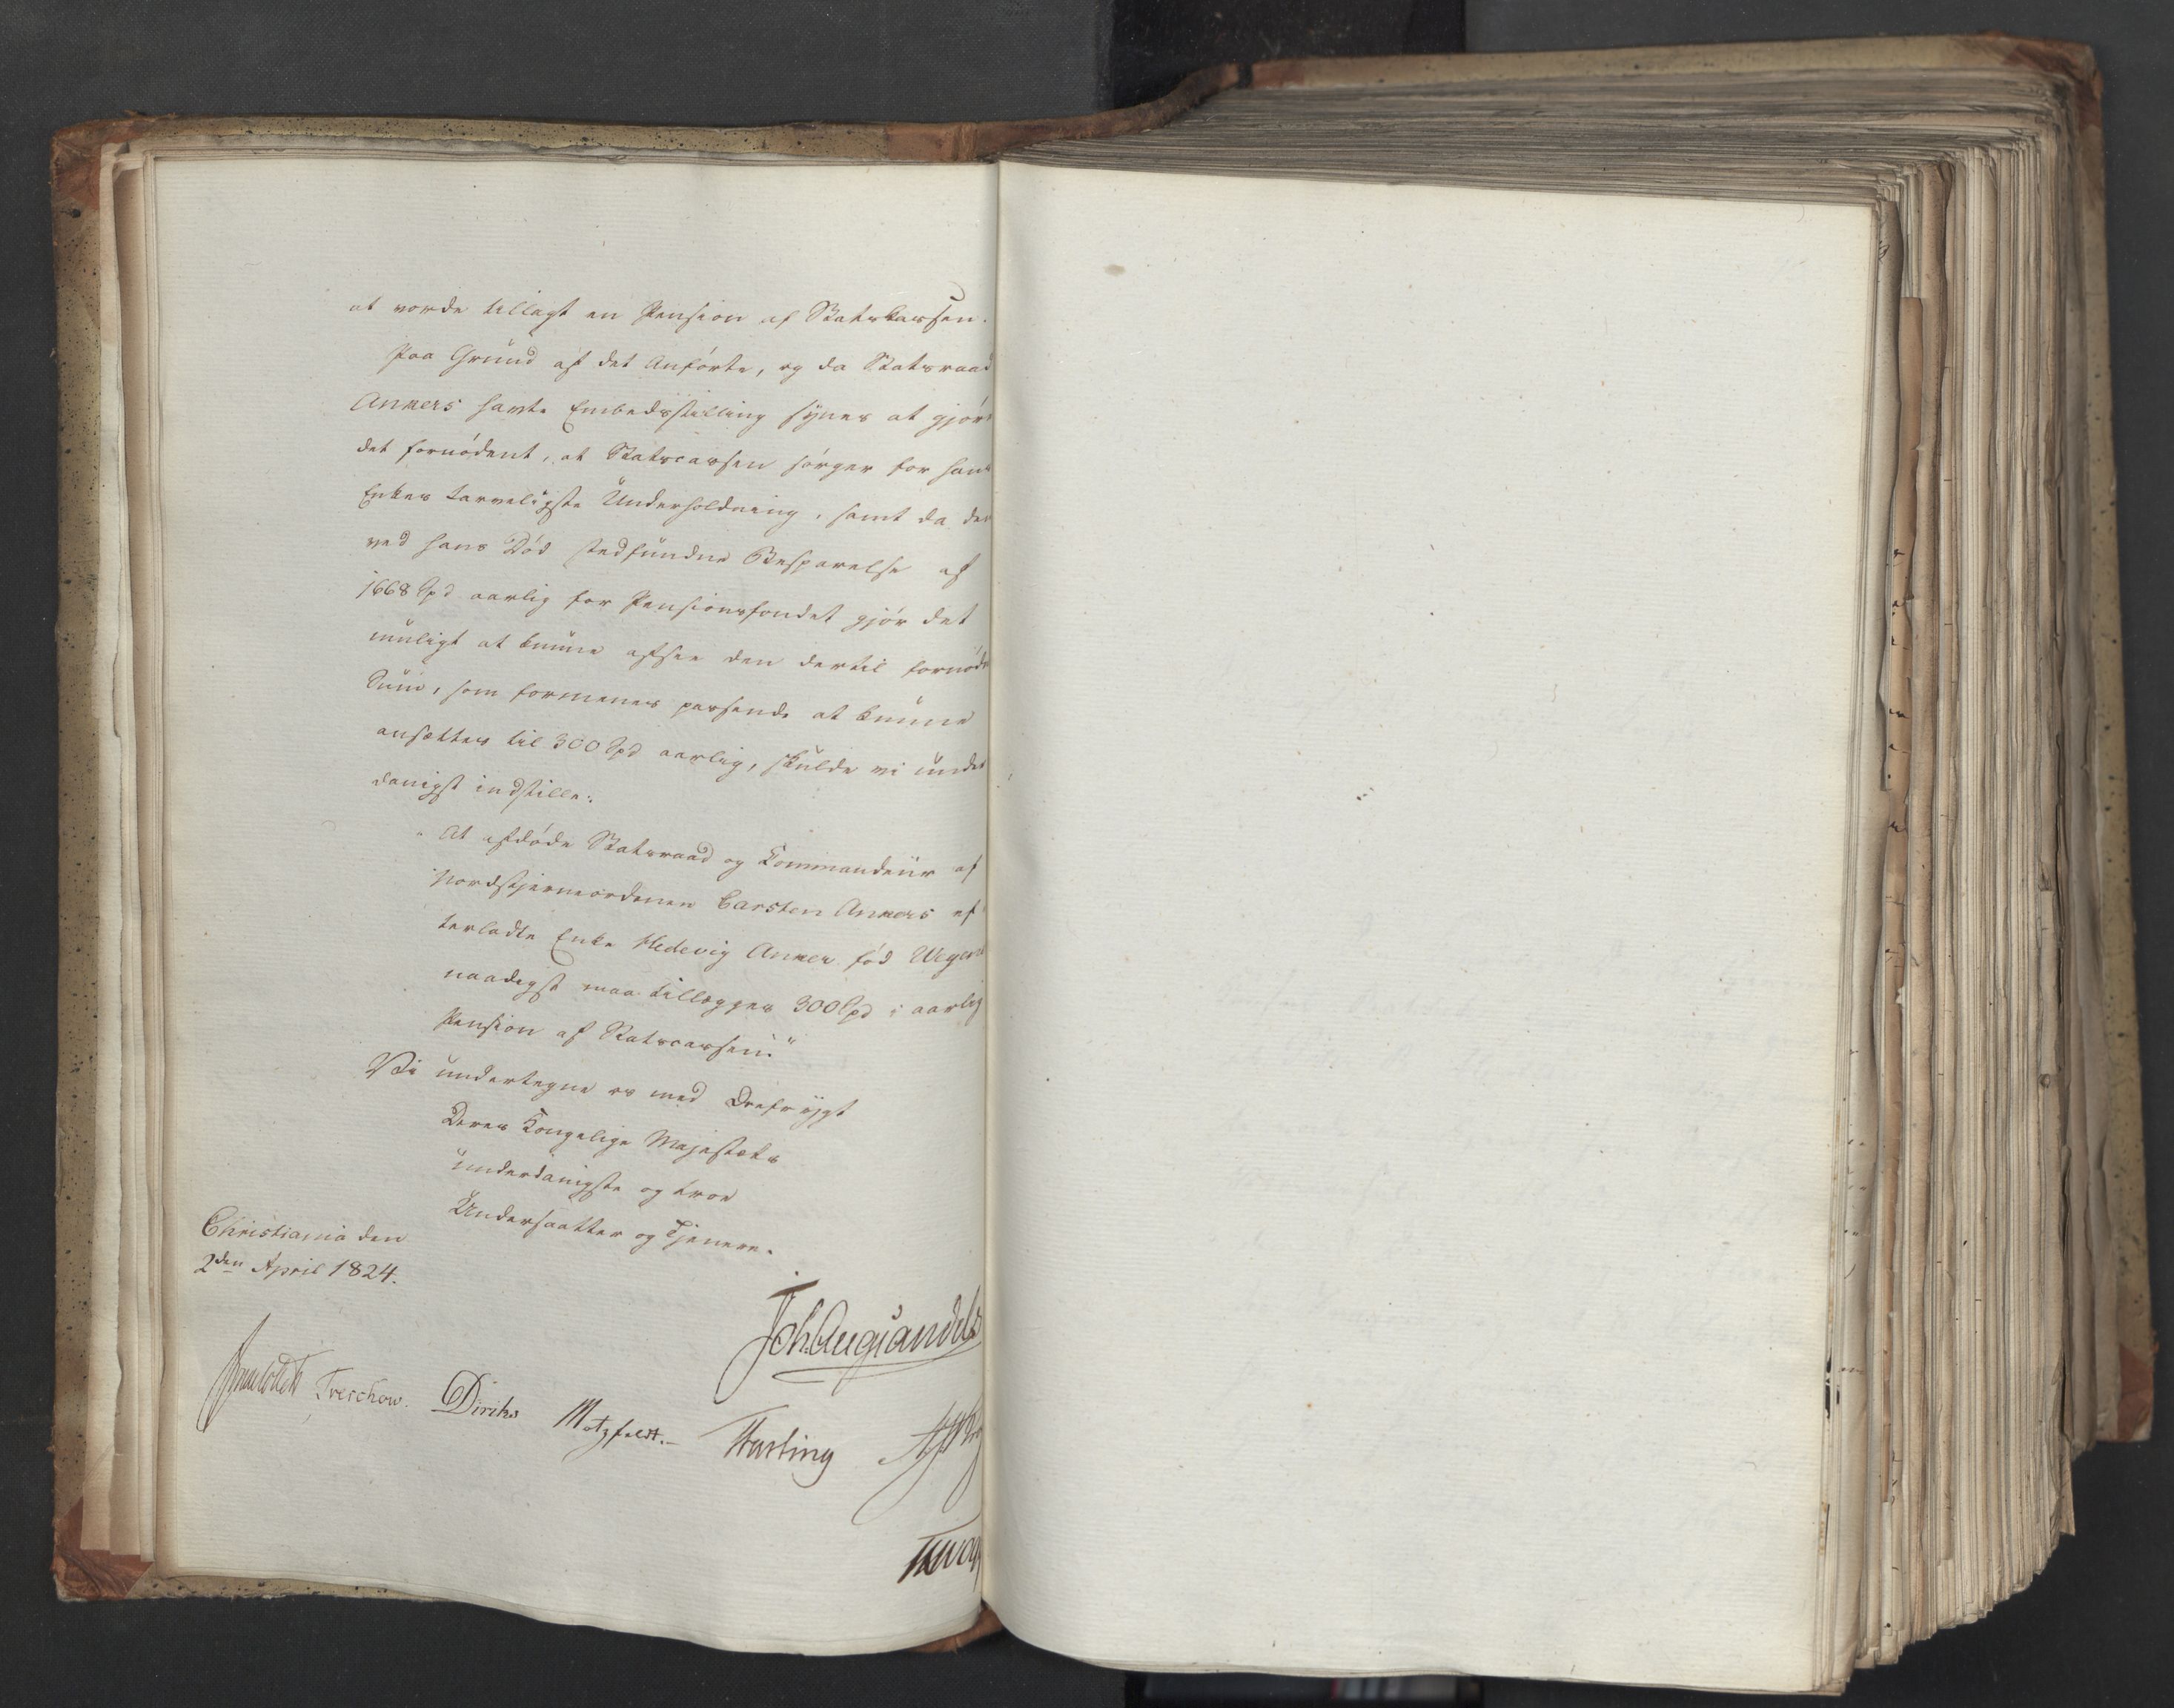 at vorde tillagt en Pension af Statskassen.
Paa Grund af det Anførte, og da Statsraad
Ankers havte Embedsstilling synes at gjøre
det fornødent, at Statscassen sørger for hans
Enkes tarveligste Underholdning, samt da den
ved hans Død stedfundne Besparelse af
1668 Spd aarlig for Pensionsfondet gjør det
muligt at kunne afsee den dertil fornødne
Sum, som formenes passende at kunne
ansættes til 300 Spd aarlig, skulde vi under
danigst indstille:
"At afdøde Statsraad og Commandeur af
Nordstjerneordenen Carsten Ankers ef
terladte Enke Hedevig Anker fød Wegener
naadigst maa tillægges 300 Spd i aarlig
Pension af Statscassen."
Vi undertegne os med Ærefrygt
Deres Kongelige Majestæts
underdanigste og troe
Undersaatter og Tjenere.
Christiania den
2den April 1824.
Joh. Aug. Sandels
Sommerhielm Treschow. Diriks Motzfeldt. Fasting